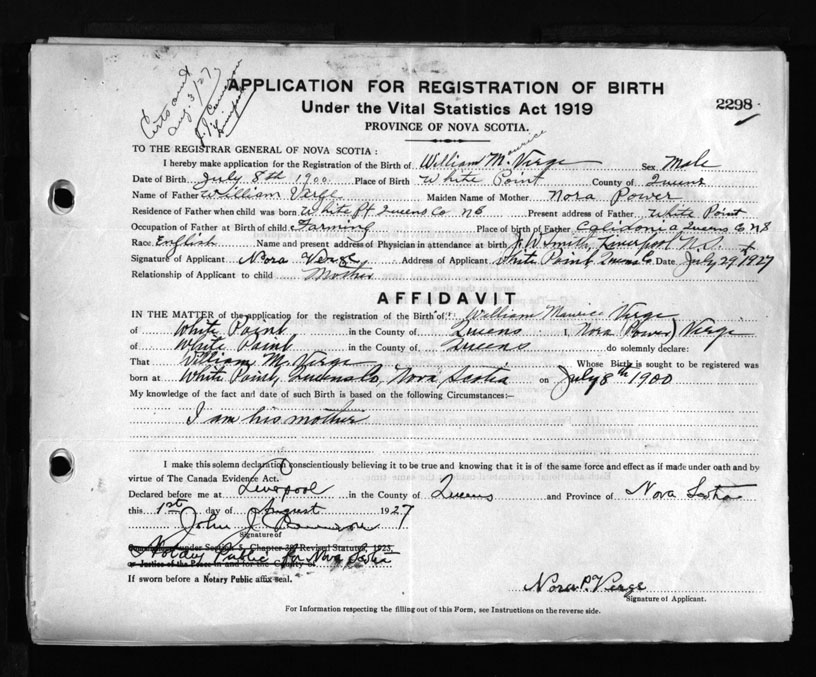 Certs and
Aug. 3/27
J. J. Cameron
APPLICATION FOR REGISTRATION OF BIRTH
Under the Vital Statistics Act 1919
2298
PROVINCE OF NOVA SCOTIA.
TO THE REGISTRAR GENERAL OF NOVA SCOTIA :
I hereby make application for the Registration of the Birth of William Maurice Verge Sex Male
Date of Birth July 8th 1900 Place of Birth White Point County of Queens
Name of Father William Verge Maiden Name of Mother Nora Power
Residence of Father when child was born White Pt Queens Co NS Present address of Father White Point
Occupation of Father at Birth of child Farming Place of birth of Father Calidonia Queens Co NS
Race English Name and present address of Physician in attendance at birth J. W. Smith, Liverpool N.S.
Signature of Applicant Nora Verge Address of Applicant White Point Queens Co Date July 29 1927
Relationship of Applicant to child Mother
AFFIDAVIT
IN THE MATTER of the application for the registration of the Birth of: William Maurice Verge
of White Point, in the County of Queens I, Nora (Power) Verge
of White Point in the County of, Queens do solemnly declare:
That William M. Verge Whose Birth is sought to be registered was
born at White Point, Queens Co, Nova Scotia on July 8th 1900
My knowledge of the fact and date of such Birth is based on the following Circumstances:—
I am his mother
I make this solemn declaration conscientiously believing it to be true and knowing that it is of the same force and effect as if made under oath and by
virtue of The Canada Evidence Act.
Declared before me at Liverpool in the County of Queens and Province of Nova Scotia
this 1st day of August 1927
John J. Cameron
Signature of
Commissioner under Section 5, Chapter 38, Revised Statutes, 1923,
Notary Public for Nova Scotia
or Justice of the Peace in and for the County of
If sworn before a Notary Public affix seal.
Nora P. Verge
Signature of Applicant.
For Information respecting the filling out of this Form, see Instructions on the reverse side.